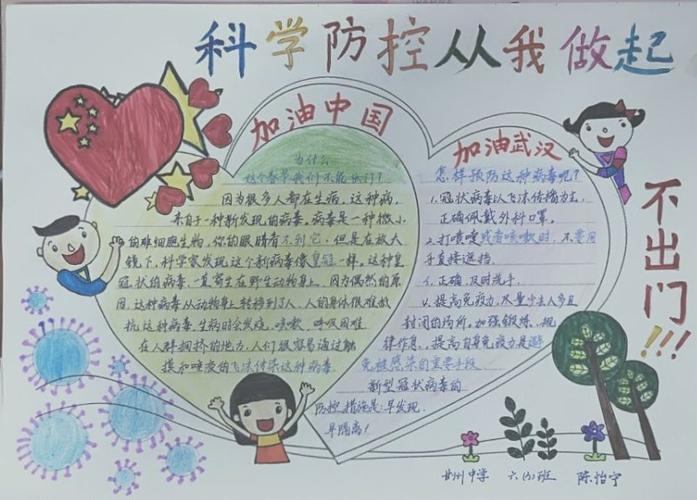 科学防控从我做起
加油中国
为什么
这个春节我们不能出门?
因为很多人都在生病，这种病，
来自一种新发现的病毒。病毒是一种微小
的非细胞生物，你的眼睛看不到它，但是在放大
镜下，科学家发现这个新病毒像皇冠一样。这种皇
冠状的病毒，一直寄生在野生动物身上，因为偶然的原
因，这种病毒从动物身上转移到了人，人的身体很难抵
抗这种病毒，生病时会发烧，咳嗽，呼吸困难
在人群拥挤的地方，人们很容易通过触
摸和喷发的飞沫传染这种病毒
加油武汉
怎样预防这种病毒呢?
1.冠状病毒以飞沫传播为主，
正确佩戴外科口罩。
2.打喷嚏或者咳嗽时，不要用
手直接遮挡。
3.正确，及时洗手。
4.提高免疫力，尽量少去人多且
封闭的场所。加强锻炼，规
律作息，提高自身免疫力是避
免被感染的重要手段
新型冠状病毒的
防控措施是:早发现
早隔离!
不出门!!!
中学 六(3)班 陈怡宁